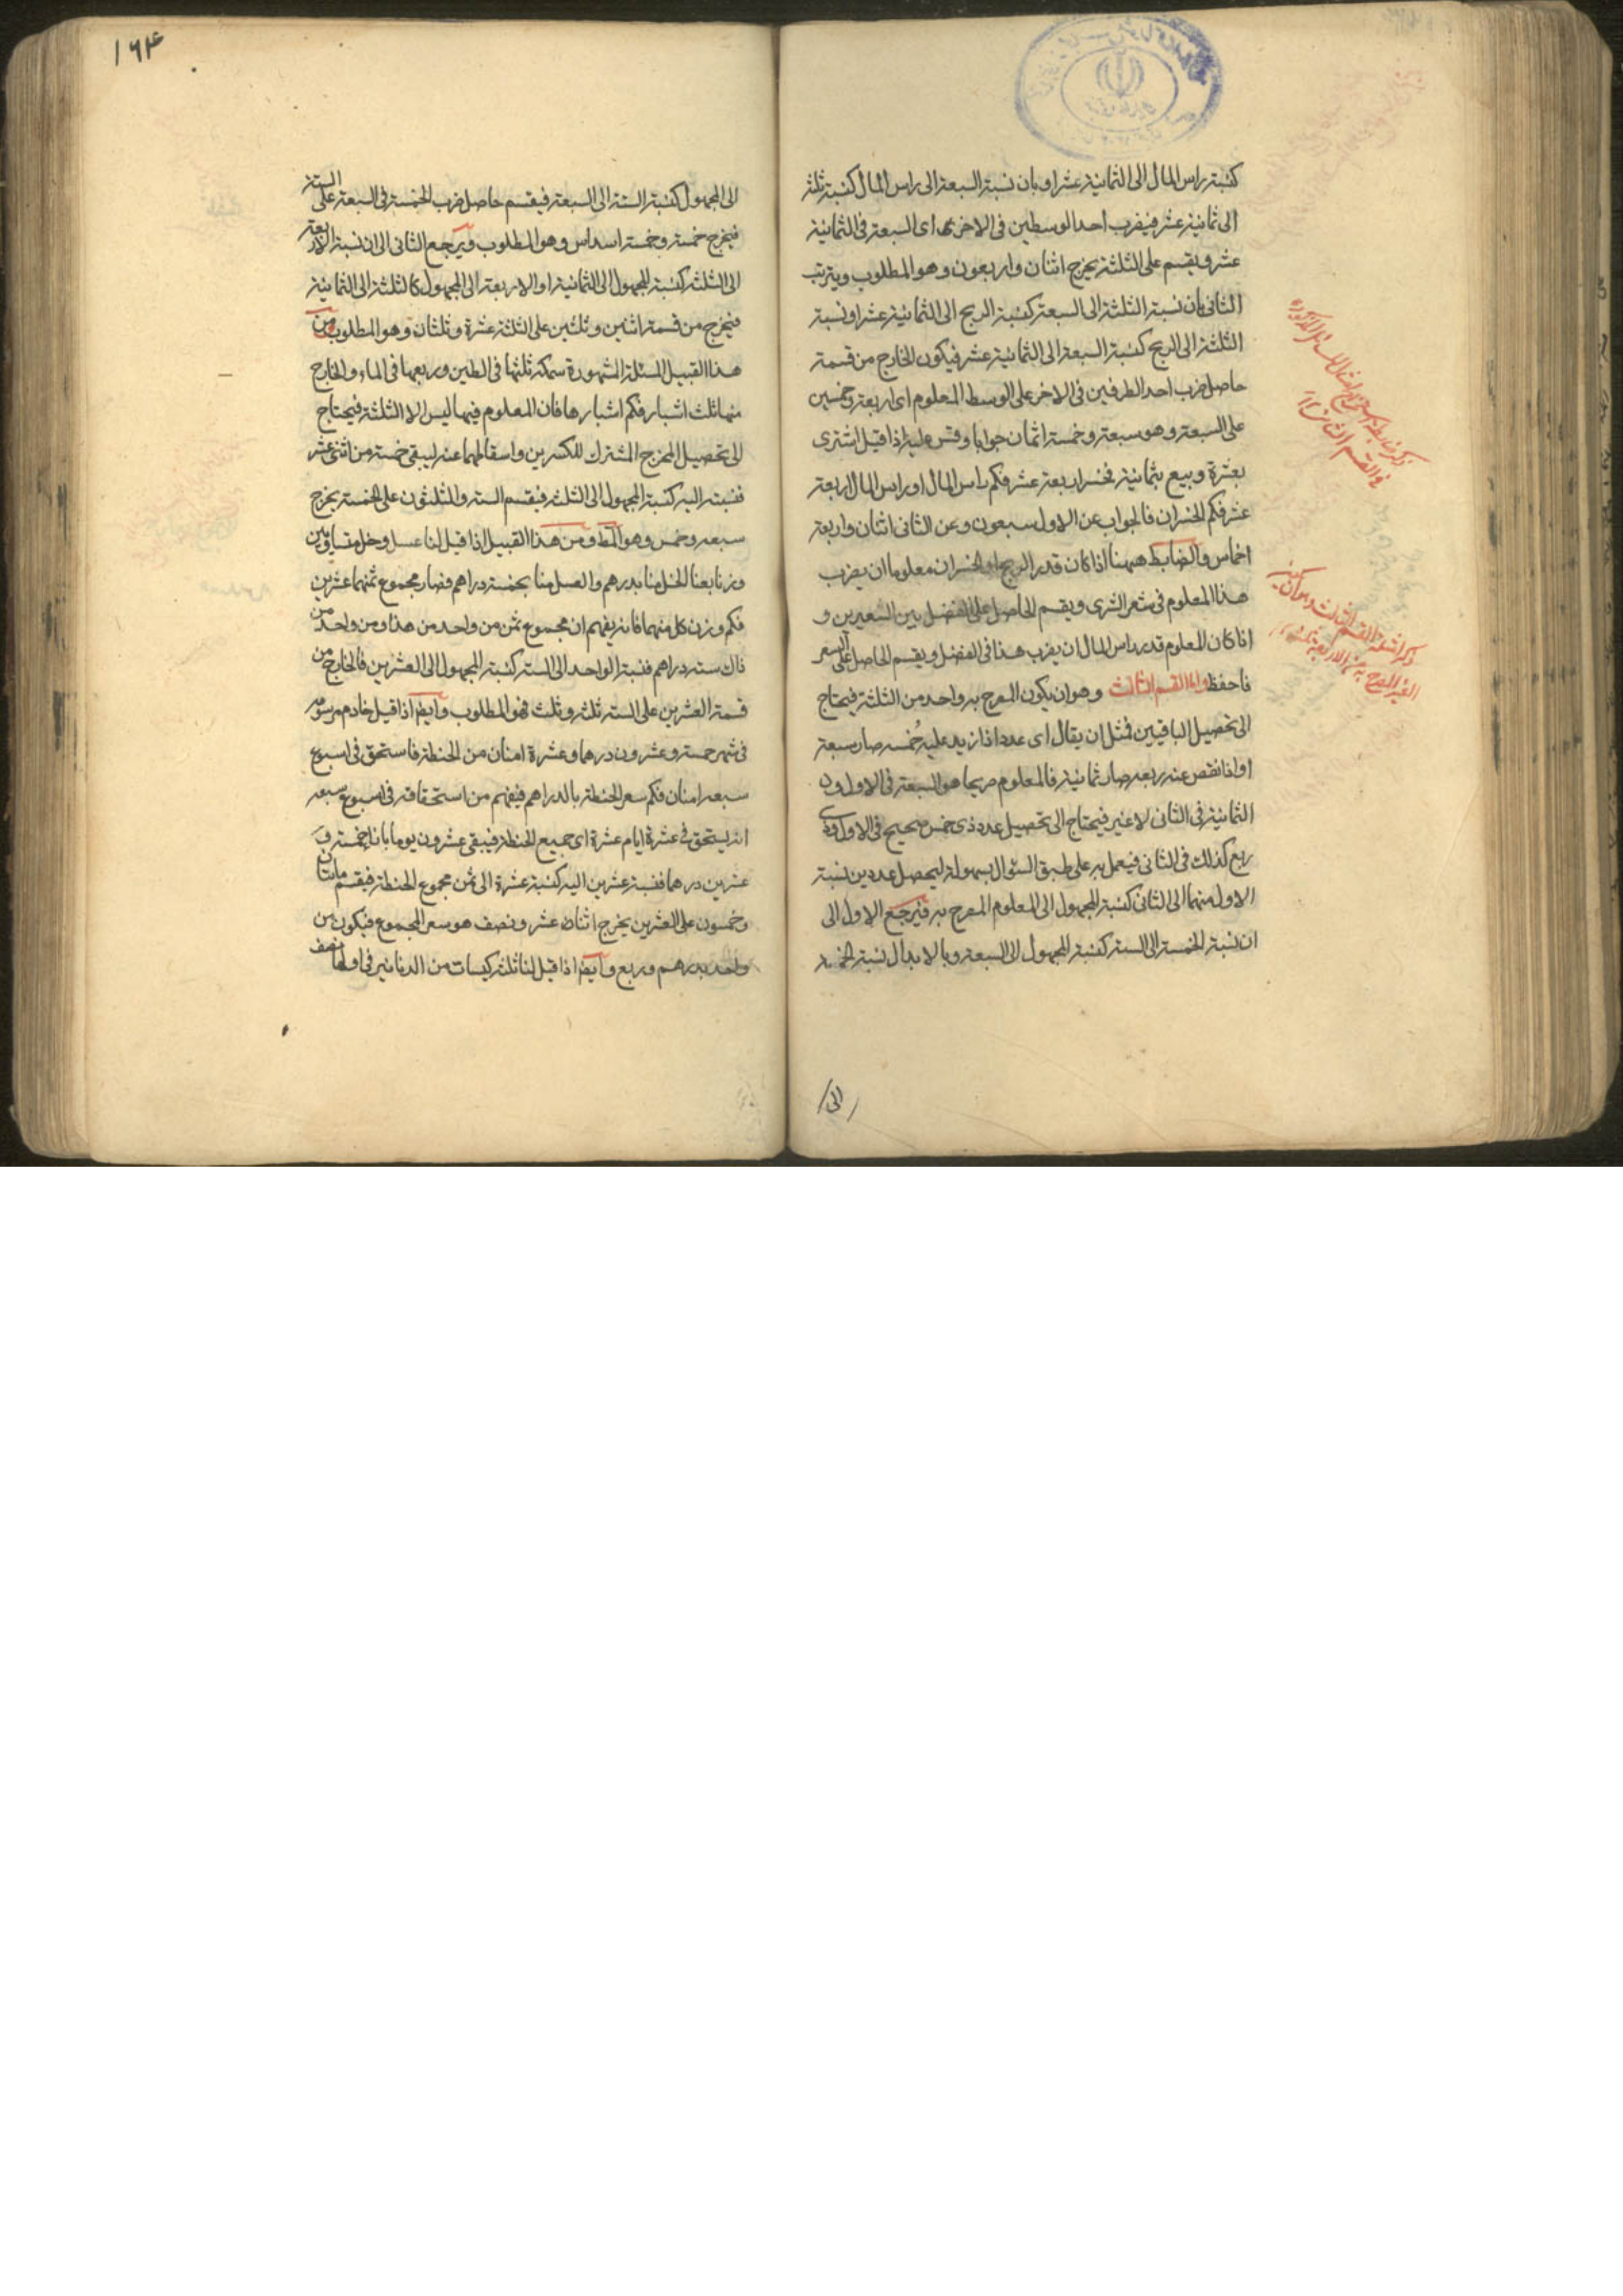 كنسبة راس المال الى الثمانية عشر او بان نسبة السبعة الى راس المال كنسبة ثلثة
الى ثمانية عشر فيضرب احد الوسطين فى الاخر اى السبعة فى الثمانية
عشر ويقسم على الثلثة يخرج اثنان واربعون وهو المطلوب ويترتب
الثانى بان نسبة الثلثة الى السبعة كنسبة الربح الى الثمانية عشر او نسبة
الثلثة الى الربح كنسبة السبعة الى الثمانية عشر فيكون الخارج من قسمة
حاصل ضرب احد الطرفين فى الاخر على الوسط المعلوم اى اربعة وخمسين
على السبعة وهو سبعة وخمسة اثمان جوابا وقس عليه اذا قيل اشترى
بعشرة وبيع بثمانية فخسر اربعة عشر فكم راس المال او راس المال اربعة
عشر فكم الخسران فالجواب عن الاول سبعون وعن الثانى اثنان واربعة
اخماس والضابط ههنا اذا كان قدر الربح او الخسران معلوما ان يضرب
هذا المعلوم فى سعر الشرى ويقسم الحاصل على الفضل بين السعرين و
اذا كان المعلوم قدر راس المال ان يضرب هذا فى الفضل ويقسم الحاصل على السعر
فاحفظ واما القسم الثالث وهو ان يكون المصرح به واحد من الثلثة فيحتاج
الى تحصيل الباقيين فمثل ان يقال اى عدد اذا زيد عليه خمسه صار سبعة
او اذا نقص عنه ربعه صار ثمانية فالمعلوم صريحا هو السبعة فى الاول و
الثمانية فى الثانى لا غير فيحتاج الى تحصيل عدد ذى خمس صحيح فى الاول وذى
ربع كذلك فى الثانى فيعمل به على طبق السؤال بسهولة ليحصل عددين نسبة
الاول منهما الى الثانى كنسبة المجهول الى المعلوم المصرح به فيرجع الاول الى
ان نسبة الخمسة الى الستة كنسبة المجهول الى السبعة وبالابدال نسبة الخمسة
الى
ذكر القسم الثالث
١٦٤
الى المجهول كنسبة الستة الى السبعة فيقسم حاصل ضرب الخمسة فى السبعة على الستة
فيخرج خمسة وخمسة اسداس وهو المطلوب ويرجع الثانى الى ان نسبة الاربعة
الى الثلثة كنسبة المجهول الى الثمانية او الاربعة الى المجهول كالثلثة الى الثمانية
فيخرج من قسمة اثنين وثلثين على الثلثة عشرة وثلثان وهو المطلوب ومن
هذا القبيل المسئلة المشهورة سمكة ثلثها فى الطين وربعها فى الماء والخارج
منها ثلث اشبار فكم اشبارها فان المعلوم فيها ليس الا الثلثة فيحتاج
الى تحصيل المخرج المشترك للكسرين واسقاطهما عنه ليبقى خمسة من اثنى عشر
فنسبته اليه كنسبة المجهول الى الثلثة فيقسم الستة والثلثون على الخمسة يخرج
سبعة وخمس وهو المط ومن هذا القبيل اذا قيل لنا عسل وخل متساويين
وزنا بعنا الخل منا بدرهم والعسل منا بخمسة دراهم فصار مجموع ثمنهما عشرين
فكم وزن كل منهما فانه يفهم ان مجموع ثمن من واحد من هذا ومن واحد من
ذاك ستة دراهم فنسبة الواحد الى الستة كنسبة المجهول الى العشرين فالخارج من
قسمة العشرين على الستة ثلثة وثلث فهو المطلوب وايضا اذا قيل خادم مرسومه
فى شهر خمسة وعشرون درهما وعشرة امنان من الحنطة فاستحق فى اسبوع
سبعة امنان فكم سعر الحنطة بالدراهم فيفهم من استحقاقه فى اسبوع سبعة
انه يستحق فى عشرة ايام عشرة اى جميع الحنطة فيبقى عشرون يوما بازاء خمسة و
عشرين درهما فنسبة عشرين اليه كنسبة عشرة الى ثمن مجموع الحنطة فيقسم مائتان
وخمسون على العشرين يخرج اثنان عشر ونصف هو سعر المجموع فيكون من
واحد بدرهم وربع وايضا اذا قيل لنا ثلثة كيسات من الدنانير فى اولها نصف